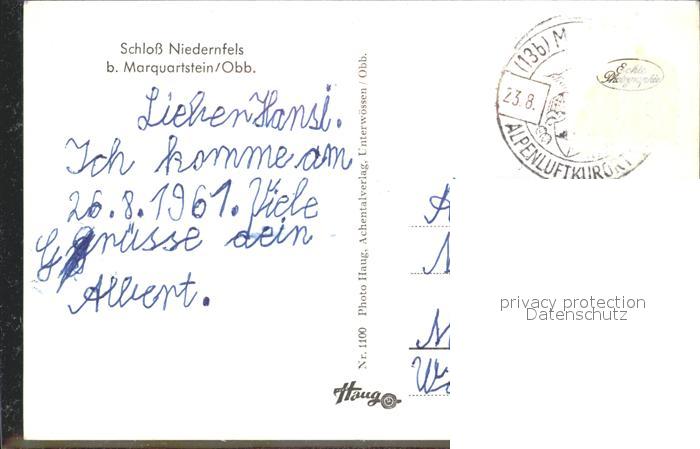 Schloß Niedernfels
b. Marquartstein/Obb.
Lieben Hansl.
Ich komme am
26.8.1961. Viele
Grüsse dein
Albert.
Nr. 1100 Photo Haug, Achentalverlag, Unterwössen / Obb.
Haug
(13b) M
23.8.
ALPENLUFTKURORT
Echte
Photographie
privacy protection
Datenschutz